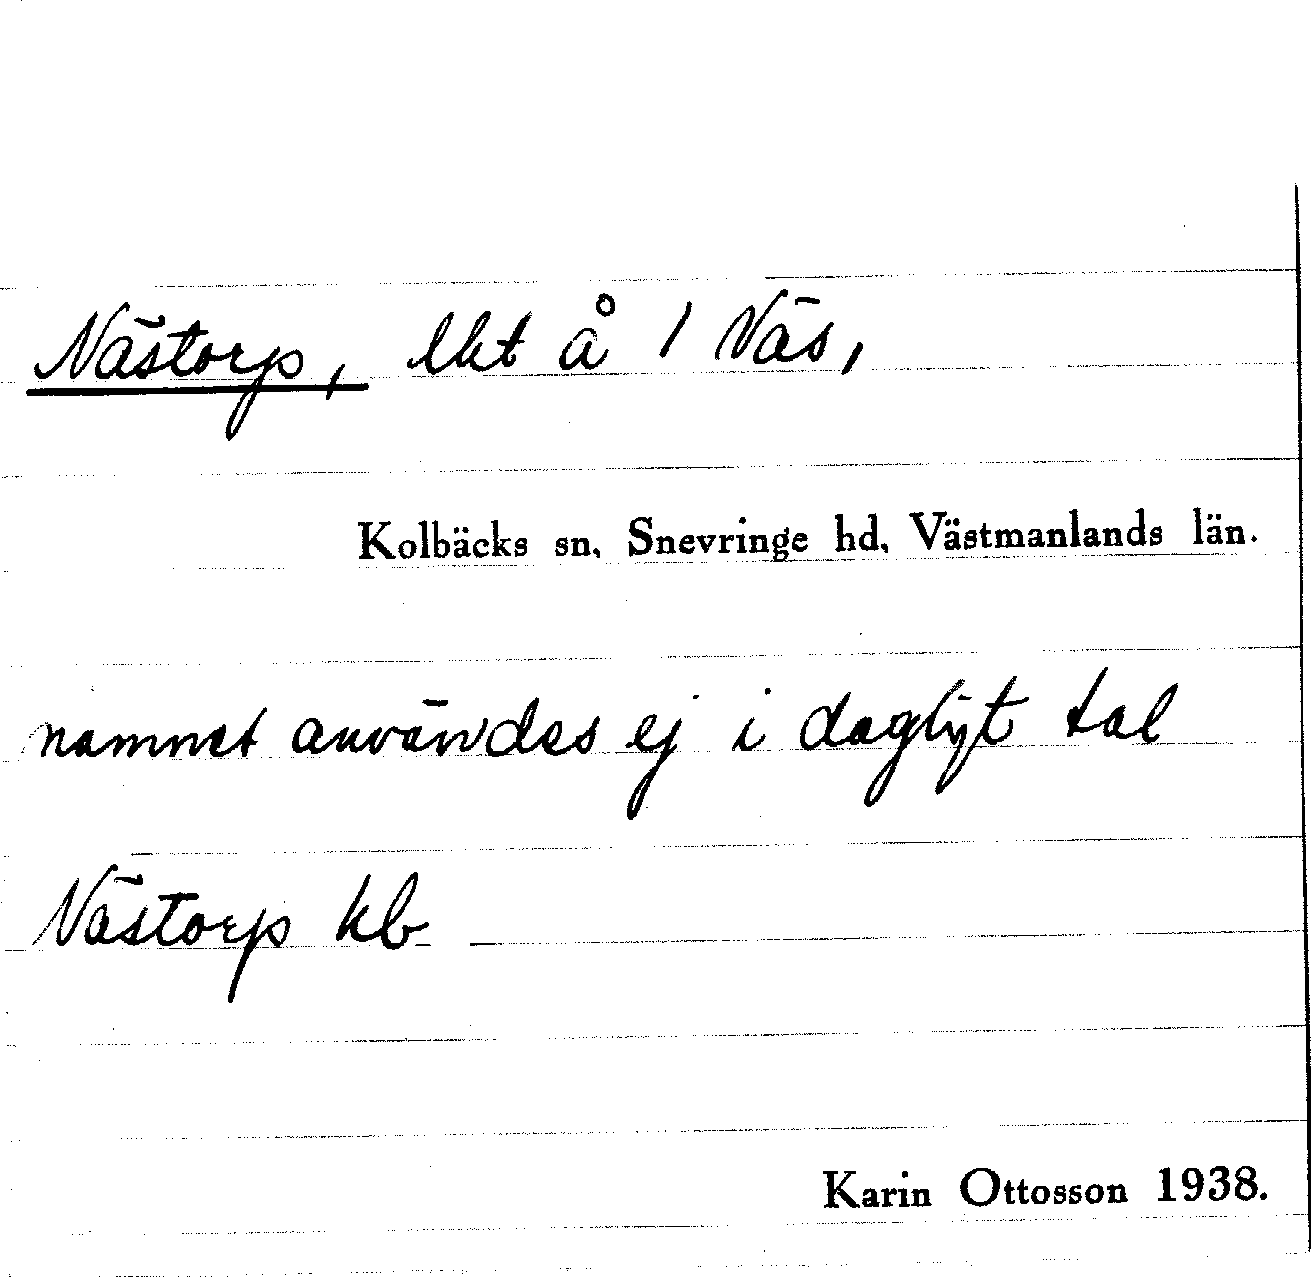 Nästorp, lht å 1 Näs,
Kolbäcks sn, Snevringe hd, Västmanlands län.
namnet användes ej i dagligt tal
Nästorp kb
Karin Ottosson 1938.